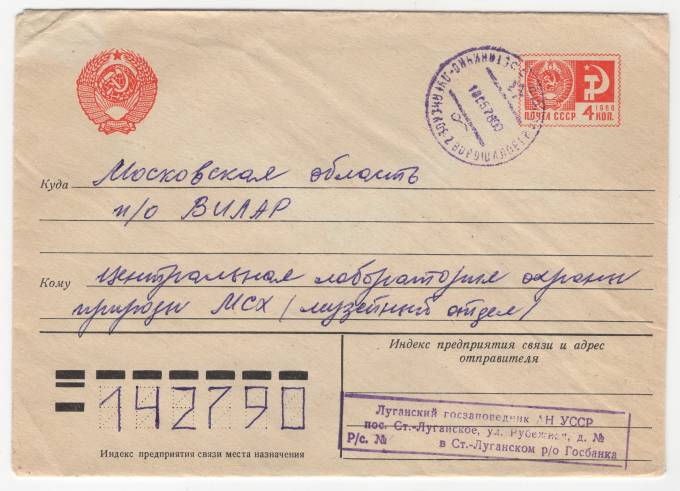 ПОЧТА СССР
1966
4 КОП.
Куда Московская область
п/о ВИЛАР
Кому Центральная лаборатория охраны
природы МСХ /музейный отдел/
Индекс предприятия связи и адрес
отправителя
142790
Индекс предприятия связи места назначения
Луганский госзаповедник АН УССР
пос. Ст.-Луганское, ул. Рубежная, д. №
Р/с. № в Ст.-Луганском р/о Госбанка